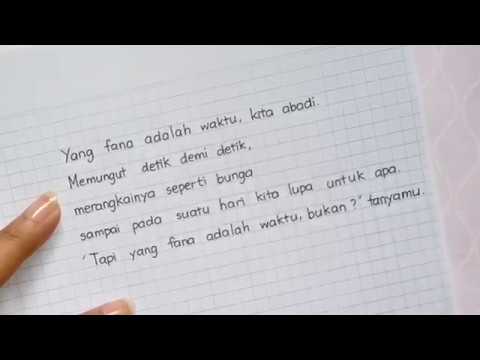 Yang fana adalah waktu, kita abadi.
Memungut detik demi detik,
merangkainya seperti bunga
sampai pada suatu hari kita lupa untuk apa.
"Tapi yang fana adalah waktu, bukan?" tanyamu.